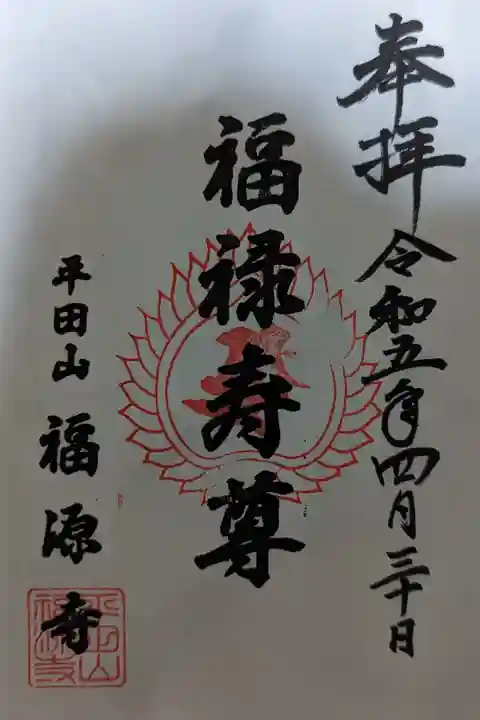 奉拝
令和五年四月三十日
福禄寿尊
平田山
福源寺